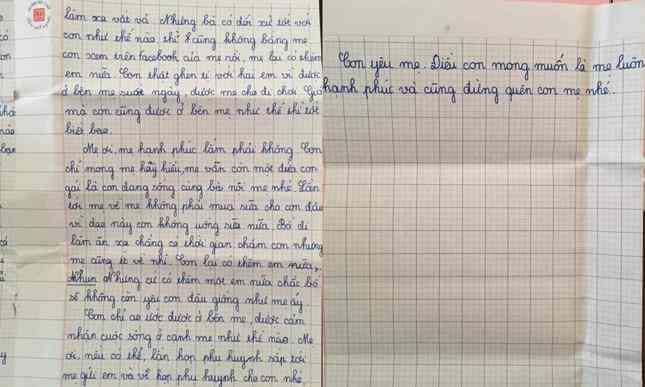 làm xa vất vả. Nhưng bà có đối xử tốt với
con như thế nào thì cũng không bằng mẹ
con xem trên facebook của mẹ rồi, mẹ lại có thêm
em nữa. Con thật ghen tị với hai em vì được
ở bên mẹ suốt ngày, được mẹ cho đi chơi. Giá
mà con cũng được ở bên mẹ như thế thì tốt
biết bao.
Mẹ ơi, mẹ hạnh phúc lắm phải không. Con
chỉ mong mẹ hãy hiểu, mẹ vẫn còn một đứa con
gái là con đang sống cùng bà nội mẹ nhé. Lần
tới mẹ về mẹ không phải mua sữa cho con đâu
vì dạo này con không uống sữa nữa. Bố đi
làm ăn xa chẳng có thời gian chăm con nhưng
mẹ cũng ít về nhỉ. Con lại có thêm em nữa,
Nhưng cứ có thêm một em nữa chắc bố
sẽ không còn yêu con đâu giống như mẹ ấy
Con chỉ ao ước được ở bên mẹ, được cảm
nhận cuộc sống ở cạnh mẹ như thế nào. Mẹ
ơi, nếu có thể, lần họp phụ huynh sắp tới
mẹ gửi em và về họp phụ huynh cho con nhé
Con yêu mẹ. Điều con mong muốn là mẹ luôn
hạnh phúc và cũng đừng quên con mẹ nhé.